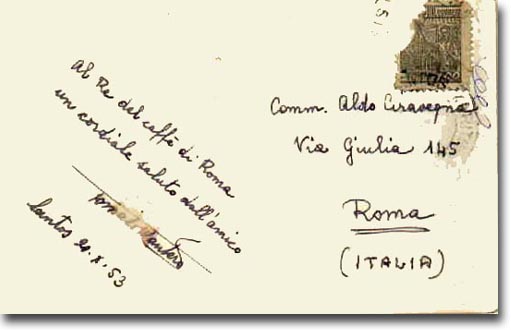 Al Re del caffè di Roma
un cordiale saluto dall'amico
Santos 21.X.53
Comm. Aldo Ciravegna
Via Giulia 145
Roma
(ITALIA)